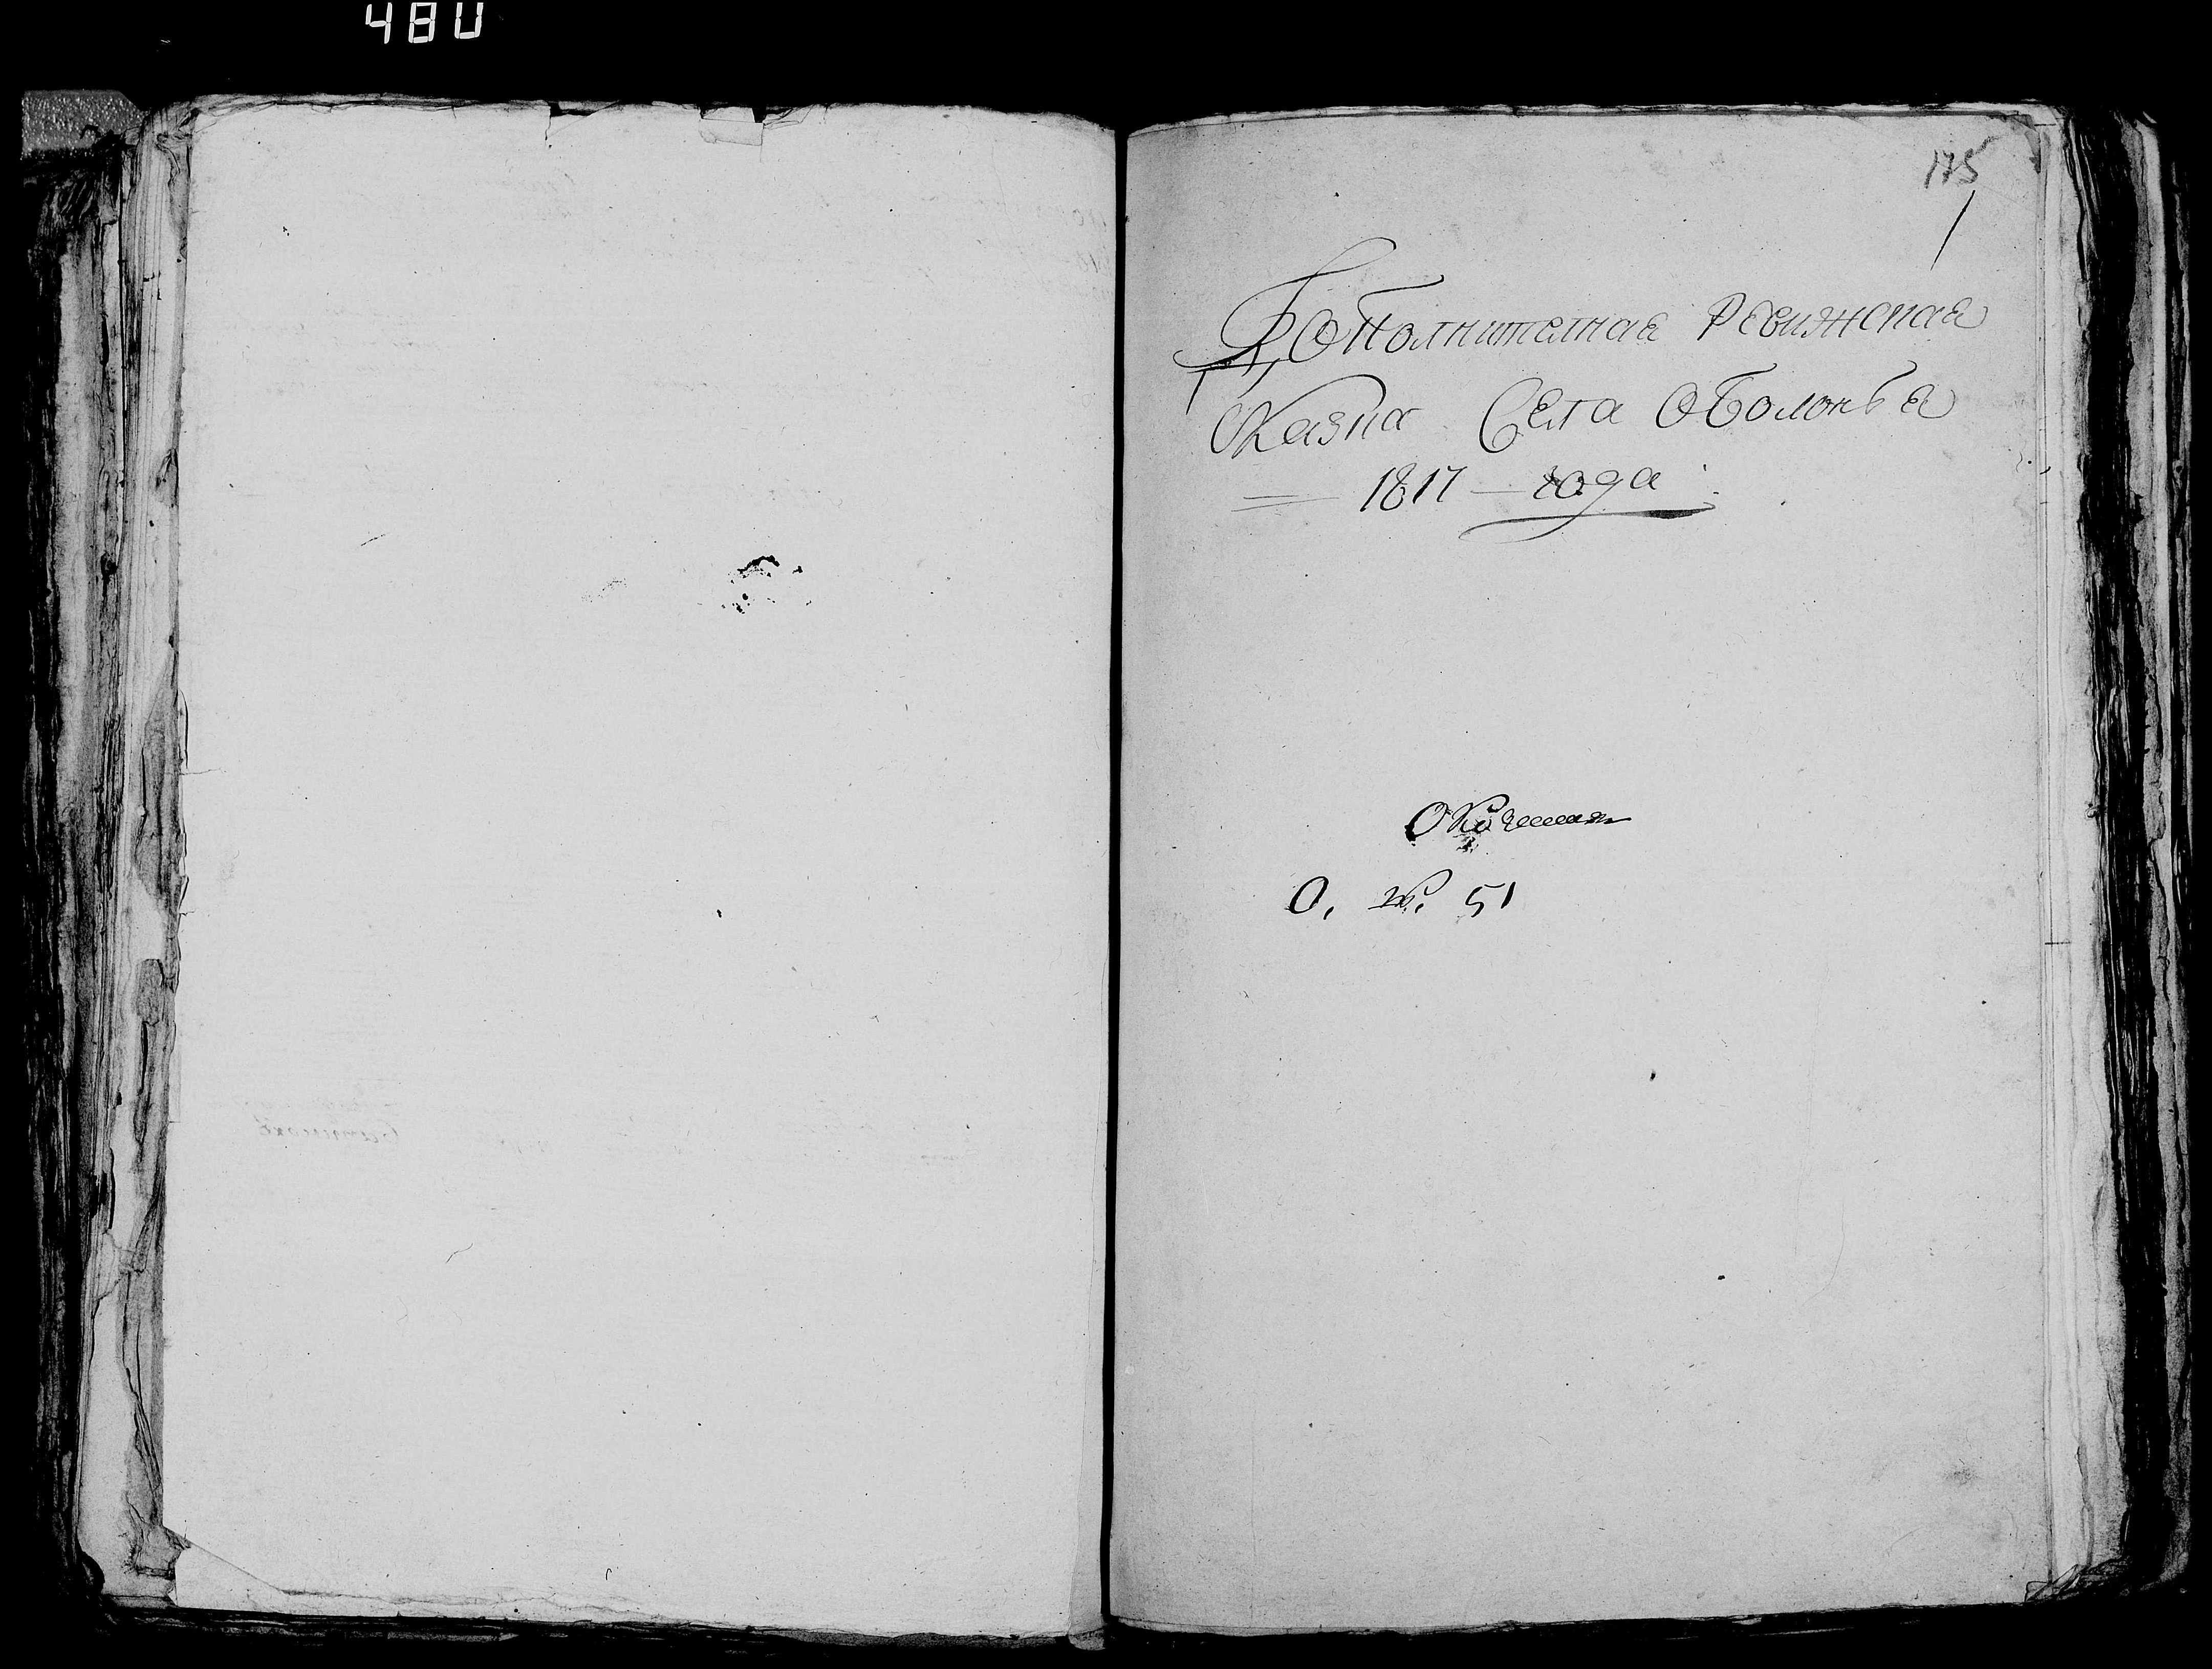 480
175
1
Дополнителная Ревижская
Сказка Села Оболонья
1817 года
О. №. 51